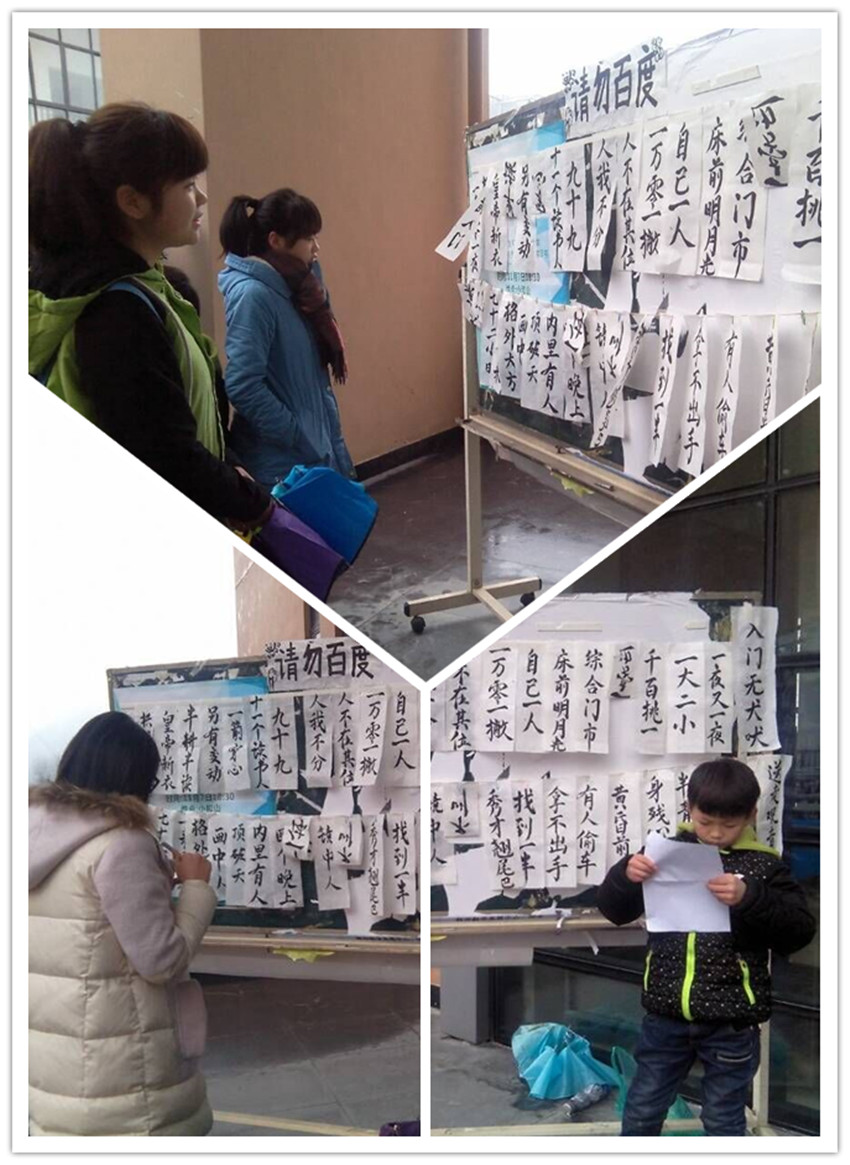 请勿百度
皇帝新衣
另有变动
九十九
人我不分
人不在其位
一万零一撇
自己一人
床前明月光
综合门市
千百挑一
七十二小时
格外大方
画中
顶破天
内里有人
晚上
找到一半
拿不出手
有人偷车
请勿百度
皇帝新衣
半耕半读
另有变动
一箭穿心
十一个读书人
九十九
人我不分
人不在其位
一万零一撇
自己一人
格外
画中人
顶破天
内里有人
晚上
镜中人
秀才翘尾巴
找到一半
不在其位
一万零一撇
自己一人
床前明月光
综合门市
千百挑一
一大二小
一夜又一夜
入门无犬吠
镜中人
秀才翘尾巴
找到一半
拿不出手
有人偷车
黄昏前
身残